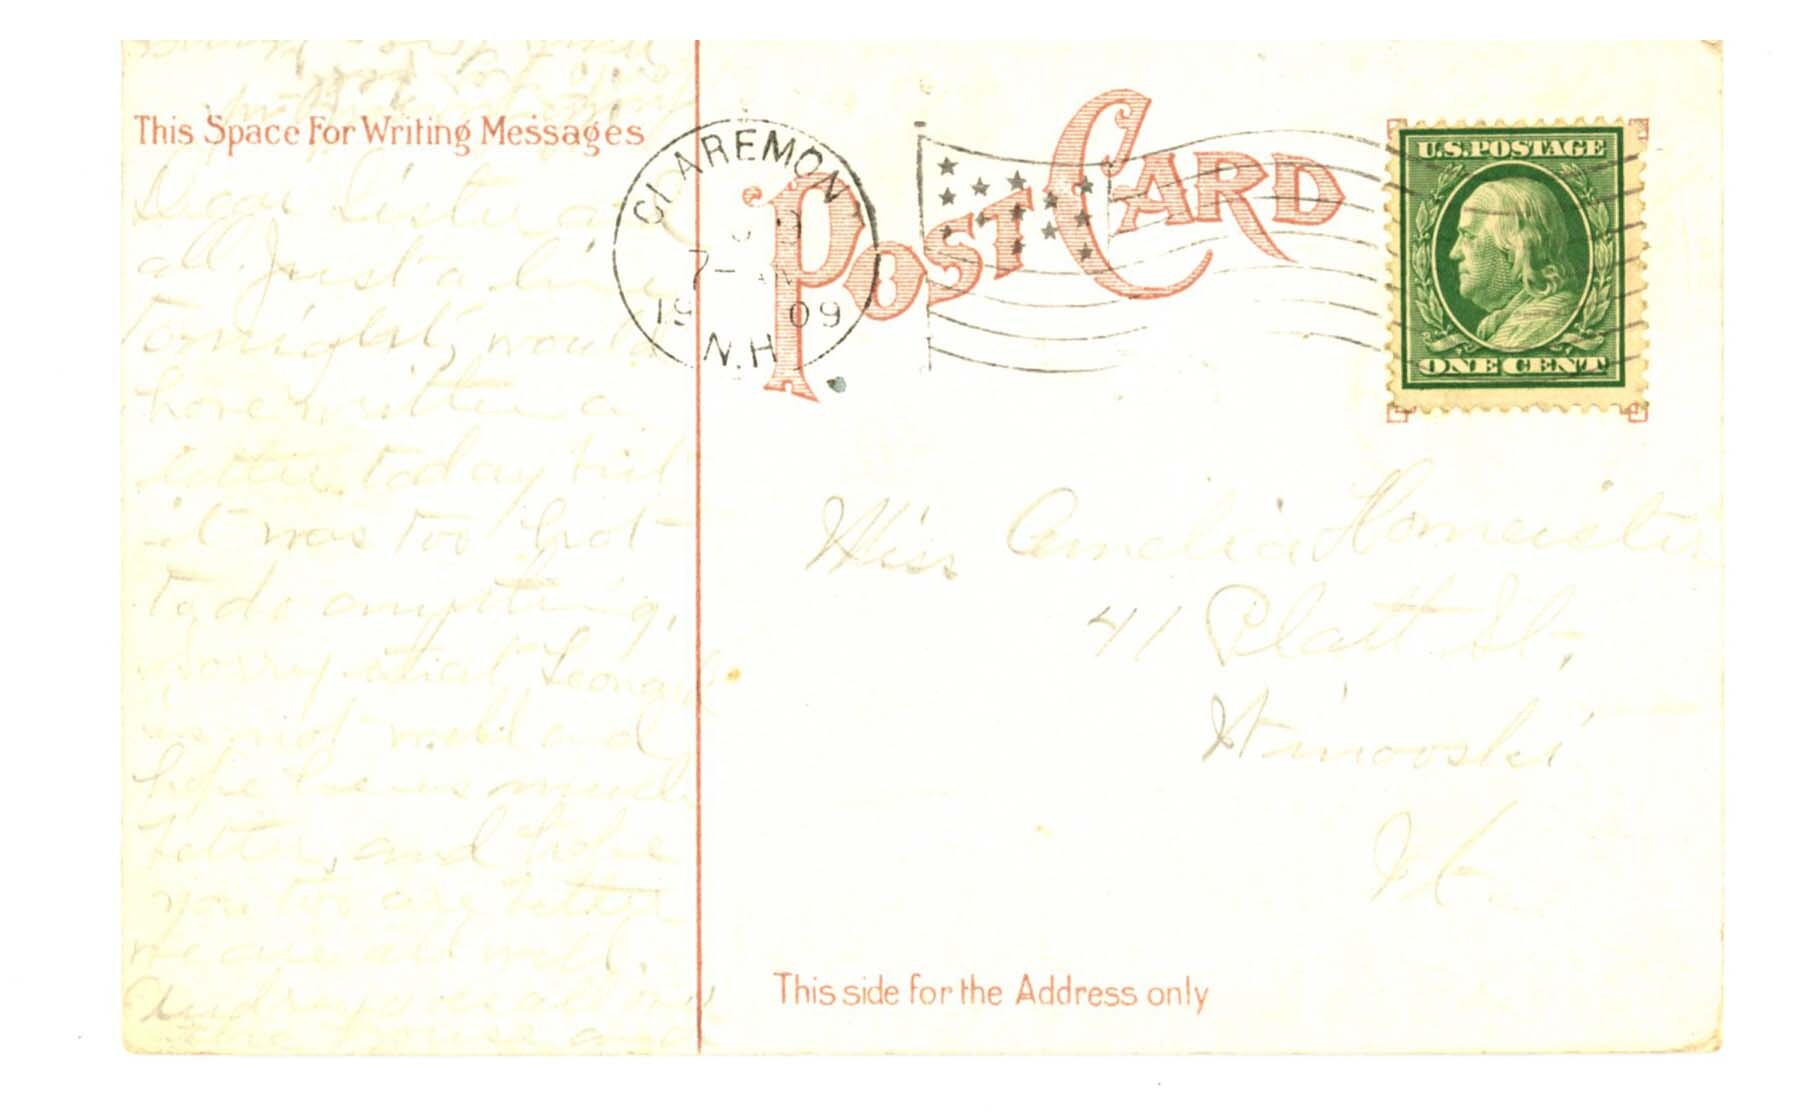 This Space For Writing Messages
Dear Sister a
all. Just a line
tonight, would
have written a
letter today but
it was too hot
to do anything,
sorry that Leonard
is not well and
hope he is much
better, and hope
you too are better
we are all well.
the house and
CLAREMONT
7-
1909
N.H.
POST CARD
U.S. POSTAGE
ONE CENT
Miss Amelia Homeister
41 Platt St,
Winooski
Vt
This side for the Address only